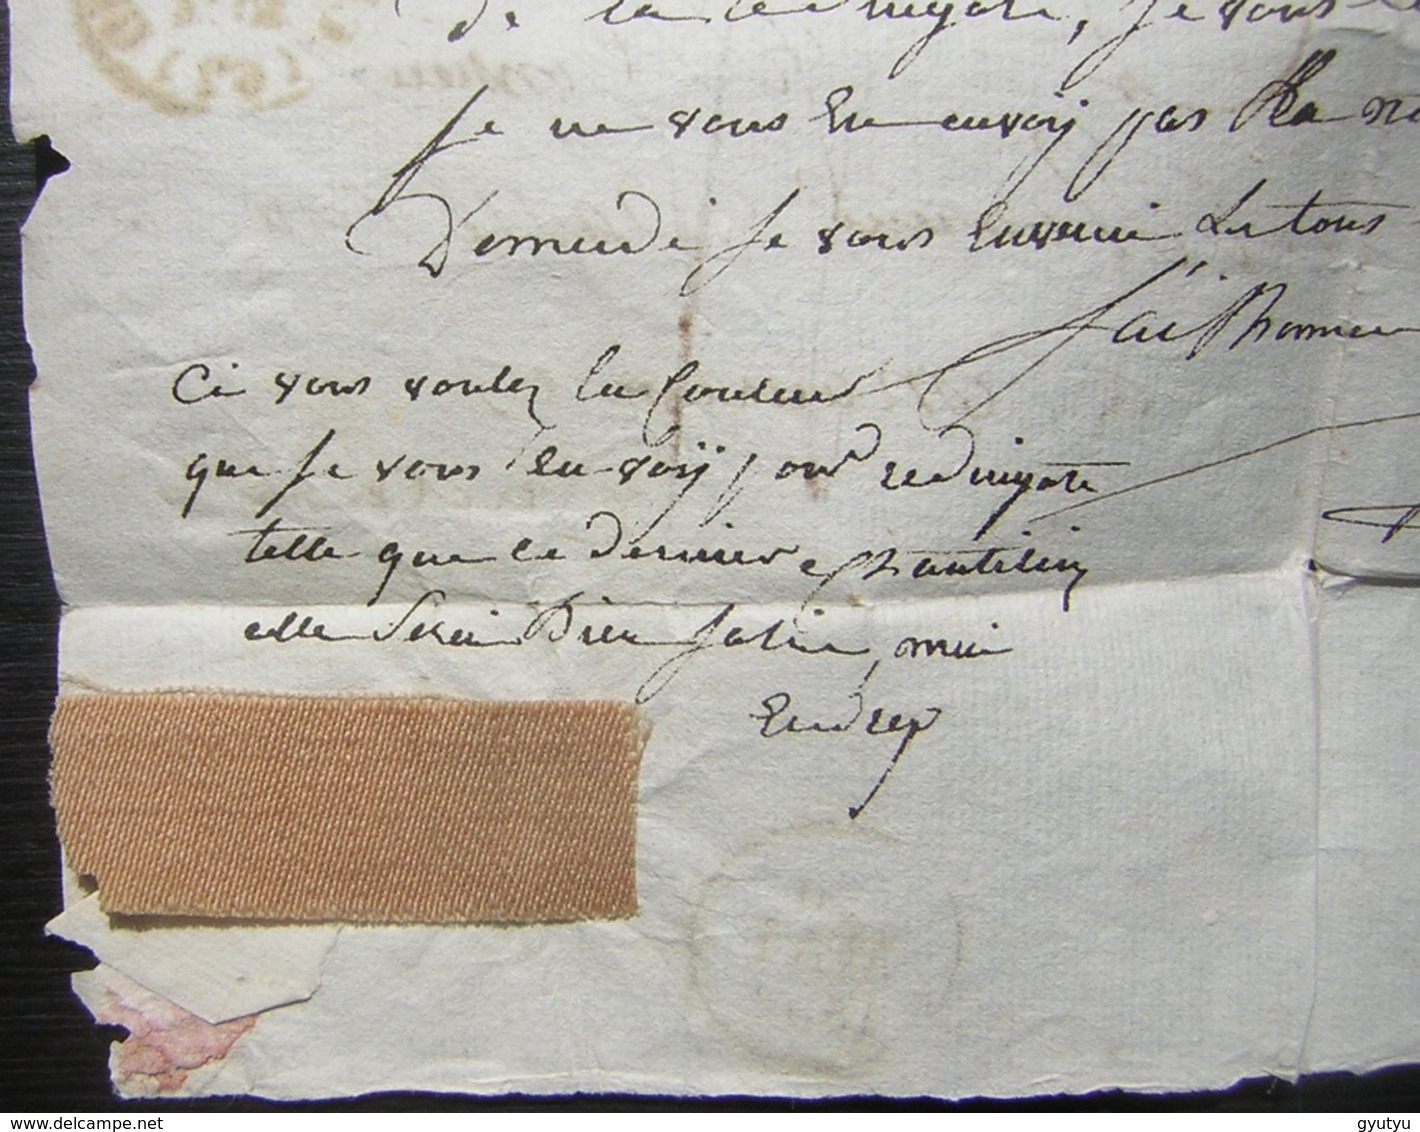 de la redingote, je vous
je ne vous en envoy pas la
Demendé je vous enverai tous
j'ai l'honneur
Ci vous voulez la Couleur
que je vous en voÿ pour redingote
telle que ce dernier echantilin
elle serai bien jolie, mui
Endrey
gyutyu